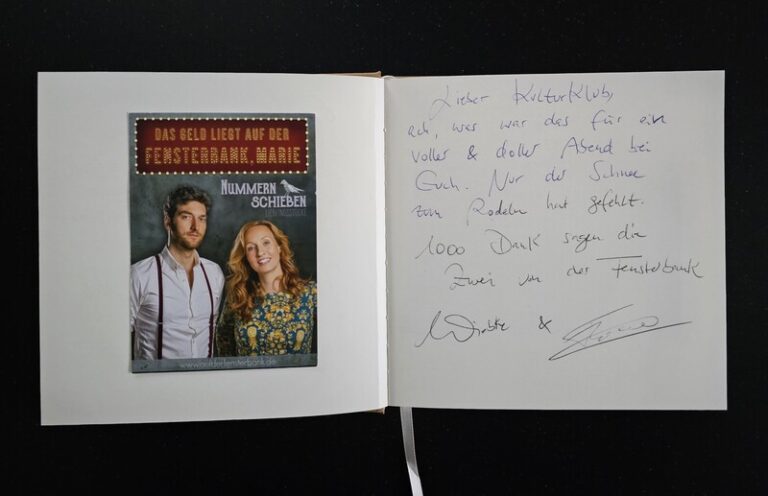 DAS GELD LIEGT AUF DER
FENSTERBANK, MARIE
NUMMERN
SCHIEBEN
Lieber KulturKlub,
ach, was war das für ein
voller & doller Abend bei
Euch. Nur der Schnee
zum Rodeln hat gefehlt.
1000 Dank sagen die
Zwei von der Fensterbank
Wiebke &